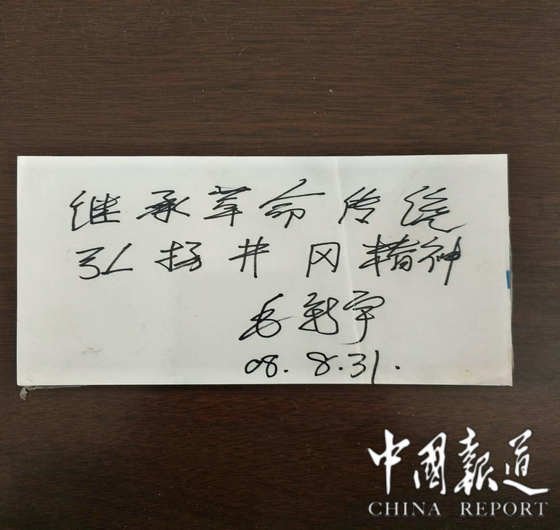 继承革命传统
弘扬井冈精神
毛新宇
08.8.31.
中国報道
CHINA REPORT